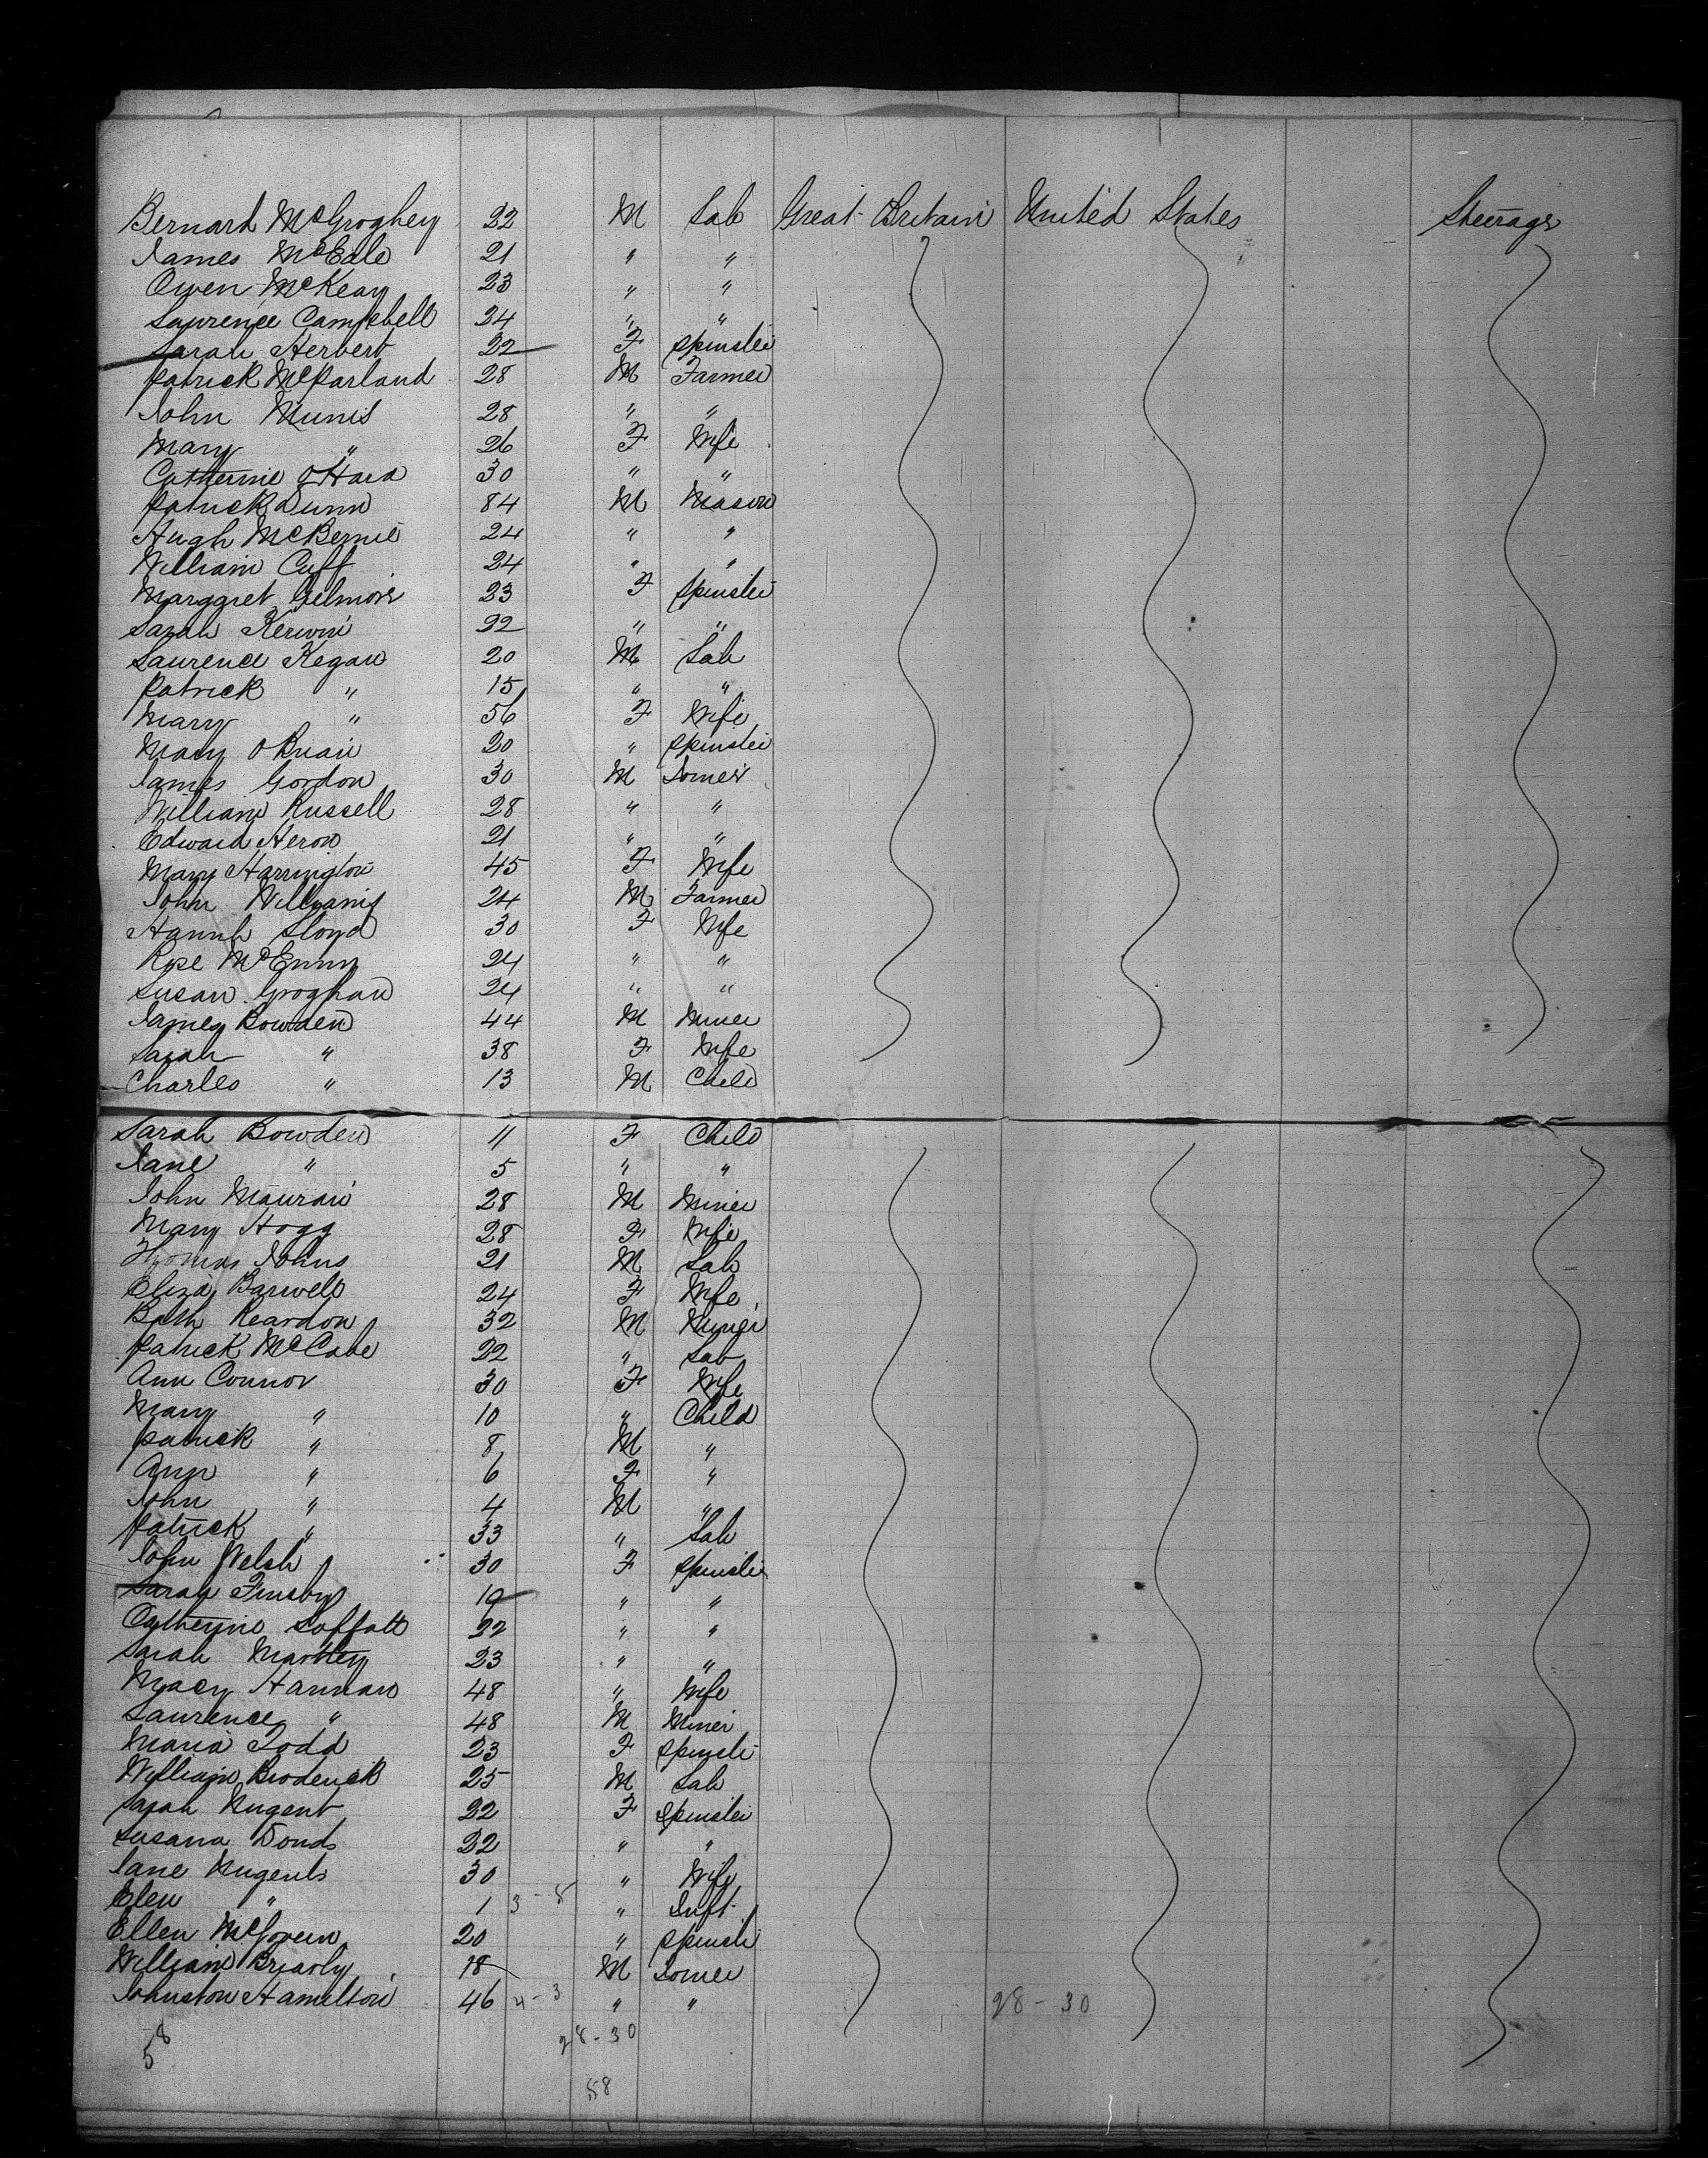 Bernard McGroghey 22 M Lab Great Britain United States Steerage
James McEale 21 " "
Owen McKeay 23 " "
Laurence Campbell 24 " "
Sarah Herbert 22 F Spinster
Patrick McParland 28 M Farmer
John Munis 28 " "
Mary " 26 F Wife
Catherine O'Hara 30 " "
Patrick Dunn 84 M Mason
Hugh McBernie 24 " "
William Cuff 24 " "
Marggret Gelmore 23 F Spinster
Sarah Kerwin 22 " "
Laurence Kegan 20 M Lab
Patrick " 15 " "
Mary " 56 F Wife
Mary O Brian 20 " Spinster
James Gordon 30 M
William Russell 28 " "
Edward Heron 21 " "
Mary Harrington 45 F Wife
John Williams 24 M Farmer
Hannh Lloyd 30 F Wife
Rose McEnny 24 " "
Susan Groghan 24 " "
James Bowden 44 M Miner
Sarah " 38 F Wife
Charles " 13 M Child
Sarah Bowden 11 F Child
Jane " 5 " "
John 28 M Miner
Mary Hogg 28 F Wife
Thomas Johns 21 M Lab
Eliza Barwell 24 F Wife
Bath Reardon 32 M Miner
Patrick McCabe 22 " Lab
Ann Connor 30 F Wife
Mary " 10 " Child
Patrick " 8 M "
Ann " 6 F "
John " 4 M "
Patrick " 33 " Lab
John Welsh 30 F Spinster
Sarah Finsby 19 " "
Catherine Loffatt 22 " "
Sarah Marthey 23 " "
Macy Hannan 48 " Wife
Laurence " 48 M Miner
Maria Todd 23 F Spinst
William Broderick 25 M Lab
Sarah Nugent 22 F Spinster
Susana Donds 22 " "
Jane Nugents 30 " Wife
Elen " 1 3-5 " Inft
Ellen McGovern 20 " Spinst
William Briarly 18 M
Johnston Hamilton 46 4-3 " " 28-30
58 28-30
58